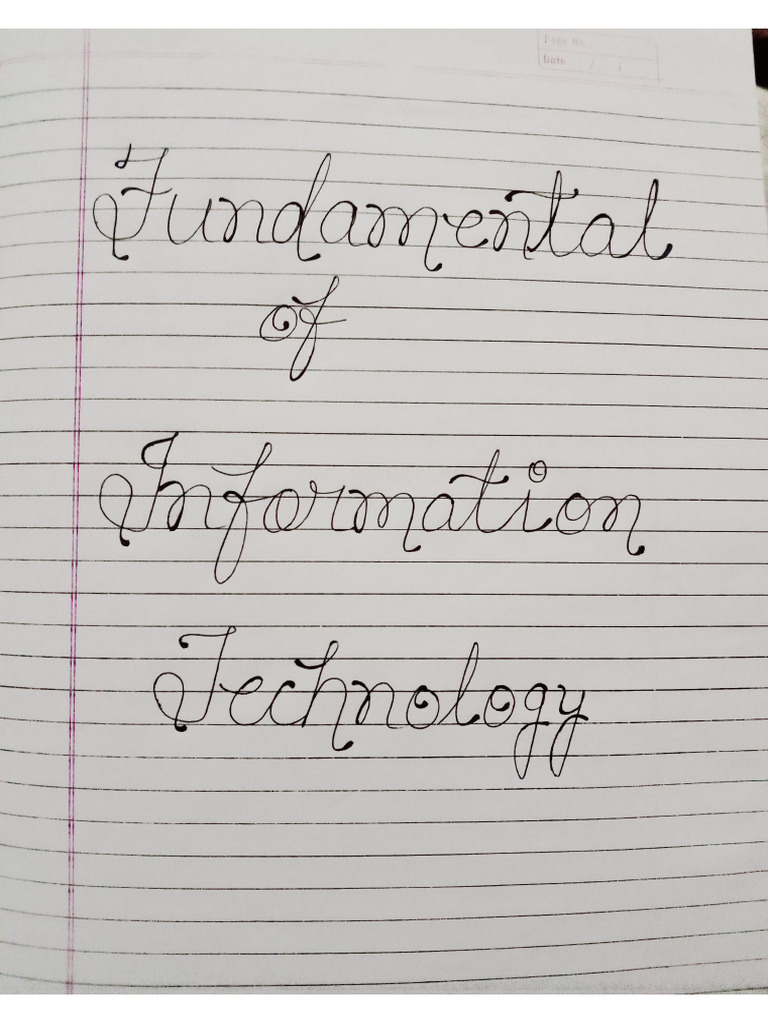 Page No.
Date / /
Fundamental
of
Information
Technology